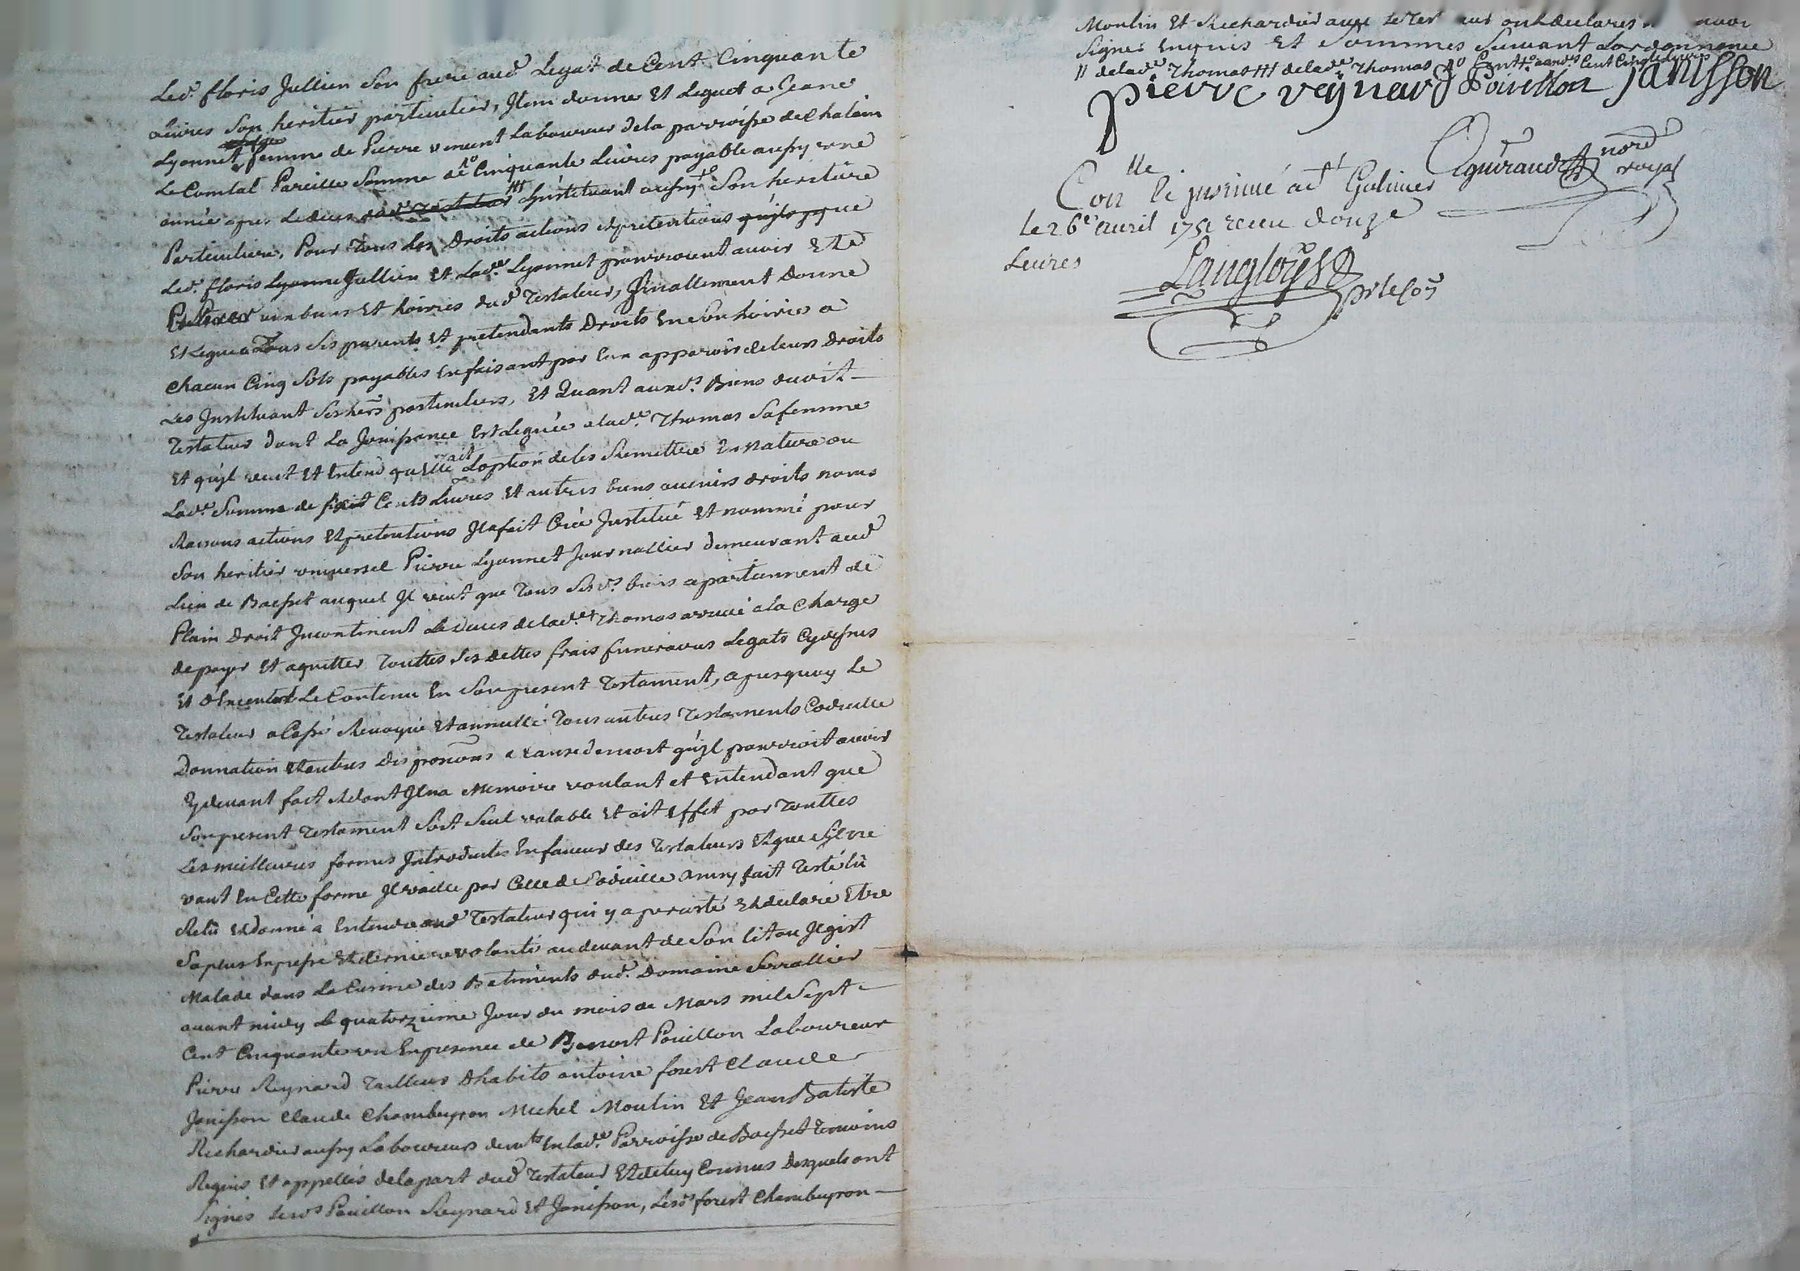 Led. floris Jullien Son frere aud. Legat de Cent Cinquante
Livres Son heritier particulier, Item donne Et Legue a Jeane
Lyonnet femme de Pierre vincent Laboureur de la parroisse de Chalain
Le Comtal Pareille Somme de Cinquante Livres payable aussy une
année apres le deces Linstituant aussy Son heritiere
Particuliere, Pour Tous Les Droits actions Et pretentions que
Led. floris Jullien Et Lad. Lyonnet pourroient avoir Et
aux biens Et hoiries dud. Testateur, finallement Donne
Et Legue a Tous Ses parents Et pretendants Droits En Son hoirie a
Chacun Cinq Sols payables En faisant par Eux apparoir de leurs Droits
Les Instituant Ses hers particuliers, Et Quant auxds. Biens dudit
Testateur dont La Jouissance Est Leguée a lad. Thomas Sa femme
Et qu'il veut Et Entend quelle ait Loption de les Remettre En Nature ou
Lad. Somme de Cents Livres Et autres biens avenirs droits noms
Raisons actions Et pretentions Il a fait Créé Institué Et nommé pour
Son heritier universel Pierre Lyonnet Journallier demeurant aud.
Lieu de Boisset auquel Il veut que Tous Sesds. biens apartiennent de
Plain Droit Incontinent le Deces de lad. Thomas arrivé a la Charge
de payer Et aquitter Touttes Ses dettes frais funeraux Legats Cydessus
Et Le Contenu En Son present Testament, a quoy Le
Testateur a Cassé Revoqué Et annullé Tous autres Testaments Codicille
Donnation Et autres dispositions a cause de mort qu'il pourroit avoir
Cydevant fait dont Il na Memoire voulant et Entendant que
Son present Testament Soit Seul valable Et ait Effet par Touttes
Les meilleures formes Introduites En faveur des Testateurs Et que Sil ne
vaut En Cette forme Il vaille par Celle de Codicille ainsy fait Testé lû
Relû Et donné a Entendre aud. Testateur qui y a persisté Et declaré Etre
Sa plus Expresse Et derniere volonté au devant de Son lit ou Il gist
Malade dans La Cuisine des Batiments dud. Domaine Serrallier
avant midy le quatorzieme Jour du mois de Mars mil Sept
Cent Cinquante un En presence de Benoit Pouillon Laboureur
Pierre Reynard Tailleur Dhabits antoine forest Claude
Janisson Claude Chambeyron Michel Moulin Et Jean Batiste
Richardier aussy Laboureurs demts. En lad. Parroisse de Boisset Temoins
Requis Et appellés de la part dud. Testateur Et de luy Connus Desquels ont
Signés Lesds. Pouillon Reynard Et Janisson, Lesds. forest Chambeyron
Moulin Et Richardier avec le Tes ont declarés
Signer Enquis Et Sommés Suivant Lordonnance
de lad. Thomas de lad. Thomas
pierre reynard Pouillon janisson
Conlle
le 26e avril 1751 receu douze
Livres
Langlois
Royal